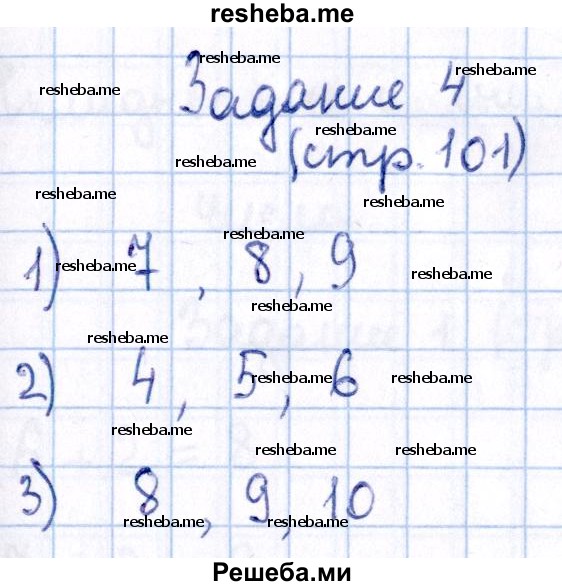 resheba.me
resheba.me
resheba.me
resheba.me
Задание 4
resheba.me
resheba.me
(стр. 101)
resheba.me
resheba.me
resheba.me
1) 7, 8, 9
resheba.me
resheba.me
resheba.me
resheba.me
2) 4, 5, 6
resheba.me
resheba.me
resheba.me
resheba.me
resheba.me
3) 8, 9, 10
resheba.me
resheba.me
Решеба.ми